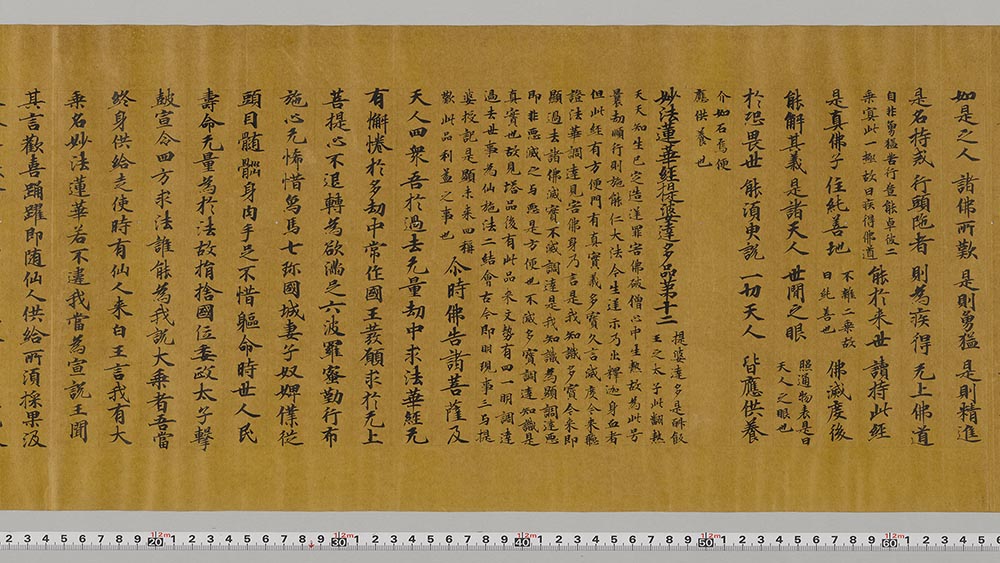 如是之人 諸佛所歎 是則勇猛 是則精進
是名持戒 行頭陁者 則為疾得 无上佛道
自非勇猛苦行豈能卓放二
乗冥此一極故曰疾得佛道
能於来世 讀持此經
是真佛子 住純善地
不離二乗故
曰純善也
佛滅度後
能解其義 是諸天人 世間之眼
照通物表是曰
天人之眼也
於恐畏世 能須臾說 一切天人 皆應供養
介如石焉便
應供養也
妙法蓮華經提婆達多品第十二
提婆達多是斛飯
王之太子此翻熱
天天知生已定造逆罪害佛破僧心中生熱故為此号
曩劫順行則施能仁大法今生逆示乃出釋迦身血者
但此經有方便門有真實義多寶久言滅度今来聽
證法華調達見害佛身乃言是我知識多寶今来即
顯過去諸佛滅實不滅調達是我知識為顯調達惡
即非惡滅之与惡是方便也不滅多寶調達知識是
真實也故見塔品後有此品来文勢有四一明調達
過去世事為仙施法二結會古今即明現事三与提
婆授記是顯未来四稱
歎此品利益之事也
尒時佛告諸菩薩及
天人四衆吾於過去无量劫中求法華經无
有懈惓於多劫中常作國王發願求於无上
菩提心不退轉為欲滿足六波羅蜜勤行布
施心无悋惜烏馬七珎國城妻子奴婢僕從
頭目髄䐉身肉手足不惜軀命時世人民
壽命无量為於法故捐捨國位委政太子擊
鼓宣令四方求法誰能為我說大乗者吾當
終身供給走使時有仙人来白王言我有大
乗名妙法蓮華若不違我當為宣說王聞
其言歡喜踊躍即随仙人供給所須採果汲
2 3 4 5 6 7 8 9 20 1 2 3 4 5 6 7 8 9 30 1 2 3 4 5 6 7 8 9 40 1 2 3 4 5 6 7 8 9 50 1 2 3 4 5 6 7 8 9 60 1 2 3 4 5 6